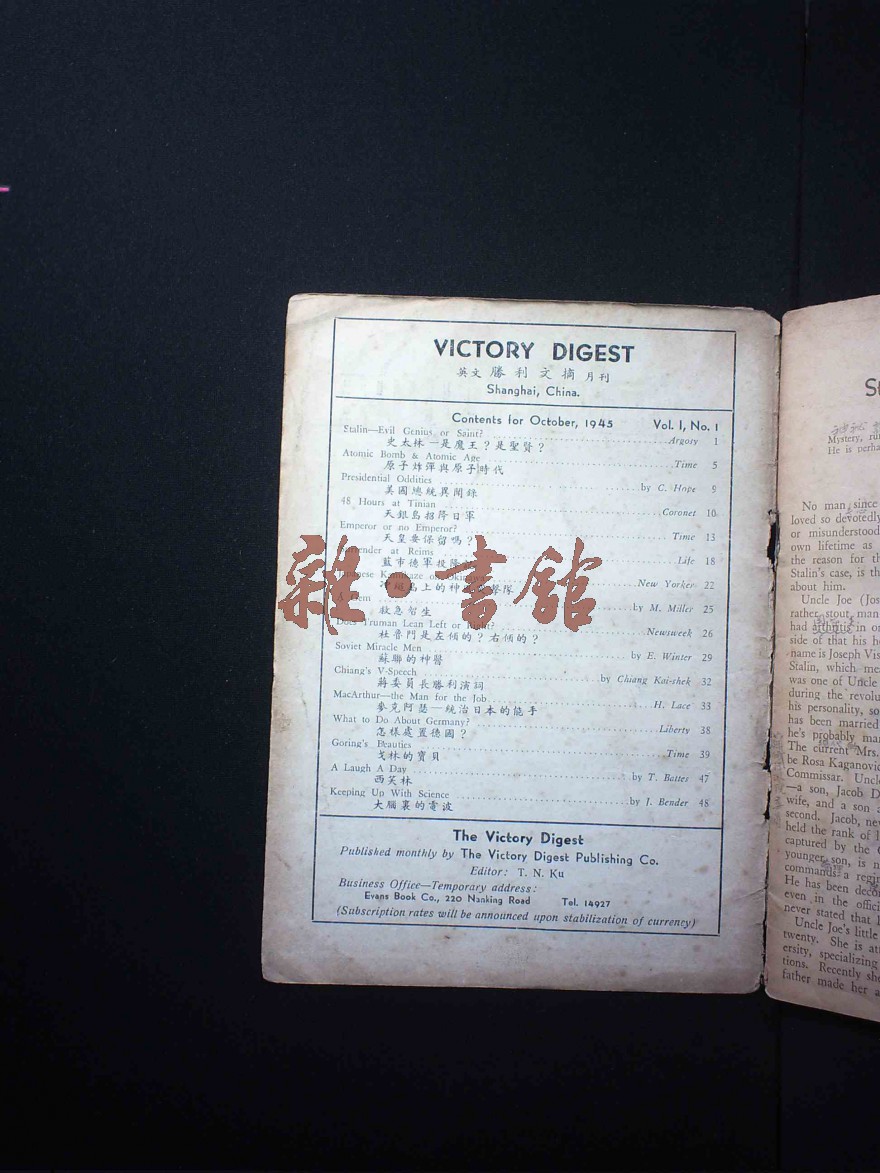 VICTORY DIGEST
英文 勝利文摘 月刊
Shanghai, China.
Contents for October, 1945 Vol. 1, No. 1
Stalin—Evil Genius or Saint? Argosy 1
史太林—是魔王?是聖賢?
Atomic Bomb & Atomic Age Time 5
原子炸彈與原子時代
Presidential Oddities by C. Hope 9
美國總統異聞錄
48 Hours at Tinian Coronet 10
天銀島招降日軍
Emperor or no Emperor? Time 13
天皇要保留嗎?
Surrender at Reims Life 18
藍市德軍投降
Kamikaze on New Yorker 22
島上的神
by M. Miller 25
救急留生
Does Truman Lean Left or Right? Newsweek 26
杜魯門是左傾的?右傾的?
Soviet Miracle Men by E. Winter 29
蘇聯的神醫
Chiang's V-Speech by Chiang Kai-shek 32
蔣委員長勝利演詞
MacArthur—the Man for the Job H. Lace 33
麥克阿瑟—統治日本的能手
What to Do About Germany? Liberty 38
怎樣處置德國?
Goring's Beauties Time 39
戈林的寶貝
A Laugh A Day by T. Battes 47
西笑林
Keeping Up With Science by J. Bender 48
大腦裏的電波
The Victory Digest
Published monthly by The Victory Digest Publishing Co.
Editor: T. N. Ku
Business Office—Temporary address:
Evans Book Co., 220 Nanking Road Tel. 14927
(Subscription rates will be announced upon stabilization of currency)
雜·書館
St
Mystery, ru
He is perha
No man since
loved so devotedly
or misunderstood
own lifetime as
the reason for th
Stalin's case, is th
about him.
Uncle Joe (Jos
rather stout man
had arthritis in or
side of that his he
name is Joseph Vis
Stalin, which me
was one of Uncle
during the revolu
his personality, so
has been married
he's probably mar
The current Mrs.
be Rosa Kaganovic
Commissar. Uncle
—a son, Jacob D
wife, and a son a
second. Jacob, nev
held the rank of l
captured by the G
younger son, is n
commands a regin
He has been deco
even in the offici
never stated that l
Uncle Joe's little
twenty. She is at
ersity, specializing
tions. Recently she
father made her a